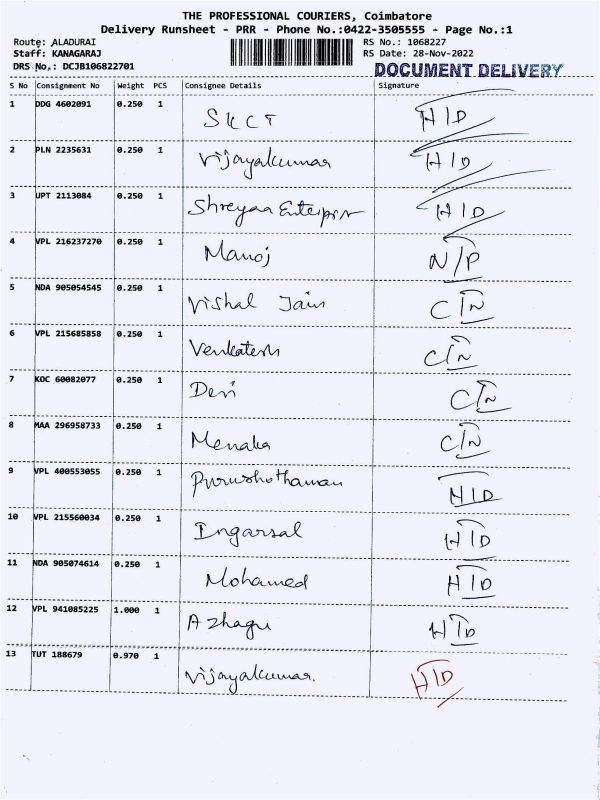 THE PROFESSIONAL COURIERS, Coimbatore
Delivery Runsheet - PRR - Phone No.:0422-3505555 - Page No.:1
Route: ALADURAI RS No.: 1068227
Staff: KANAGARAJ RS Date: 28-Nov-2022
DRS No,: DCJB106822701 DOCUMENT DELIVERY
S No Consignment No Weight PCS Consignee Details Signature
1 DDG 4602091 0.250 1 SKCT H/D
2 PLN 2235631 0.250 1 Vijayakumar H/D
3 UPT 2113084 0.250 1 Shreyaa Enterpr H/D
4 VPL 216237270 0.250 1 Manoj N/P
5 NDA 905054545 0.250 1 Vishal Jain C/N
6 VPL 215685858 0.250 1 Venkatesh C/N
7 KOC 60082077 0.250 1 Devi C/N
8 MAA 296958733 0.250 1 Menaka C/N
9 VPL 400553055 0.250 1 Purushothaman H/D
10 VPL 215560034 0.250 1 Ingarsal H/D
11 NDA 905074614 0.250 1 Mohamed H/D
12 VPL 941085225 1.000 1 Azhagu H/D
13 TUT 188679 0.970 1 Vijayakumar. H/D